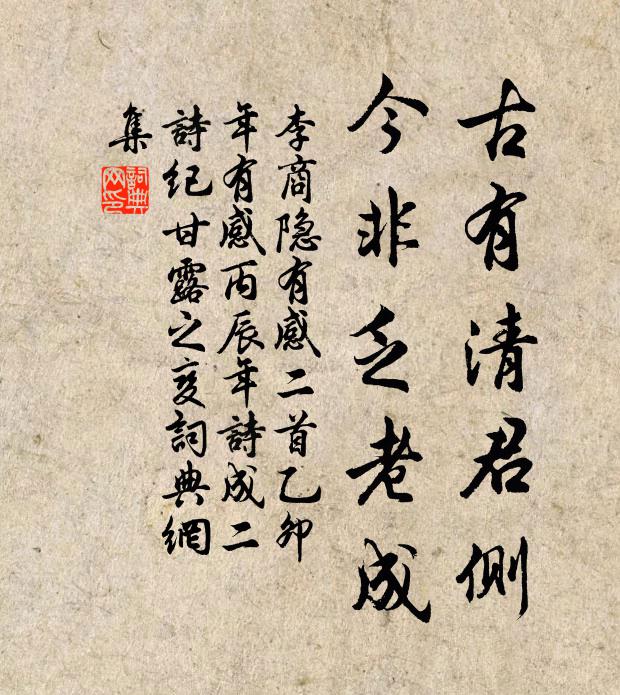 古有清君側
今非乏老成
李商隐有感二首乙卯
年有感丙辰年詩成二
詩纪甘露之变詞典網
集
詞典
网印